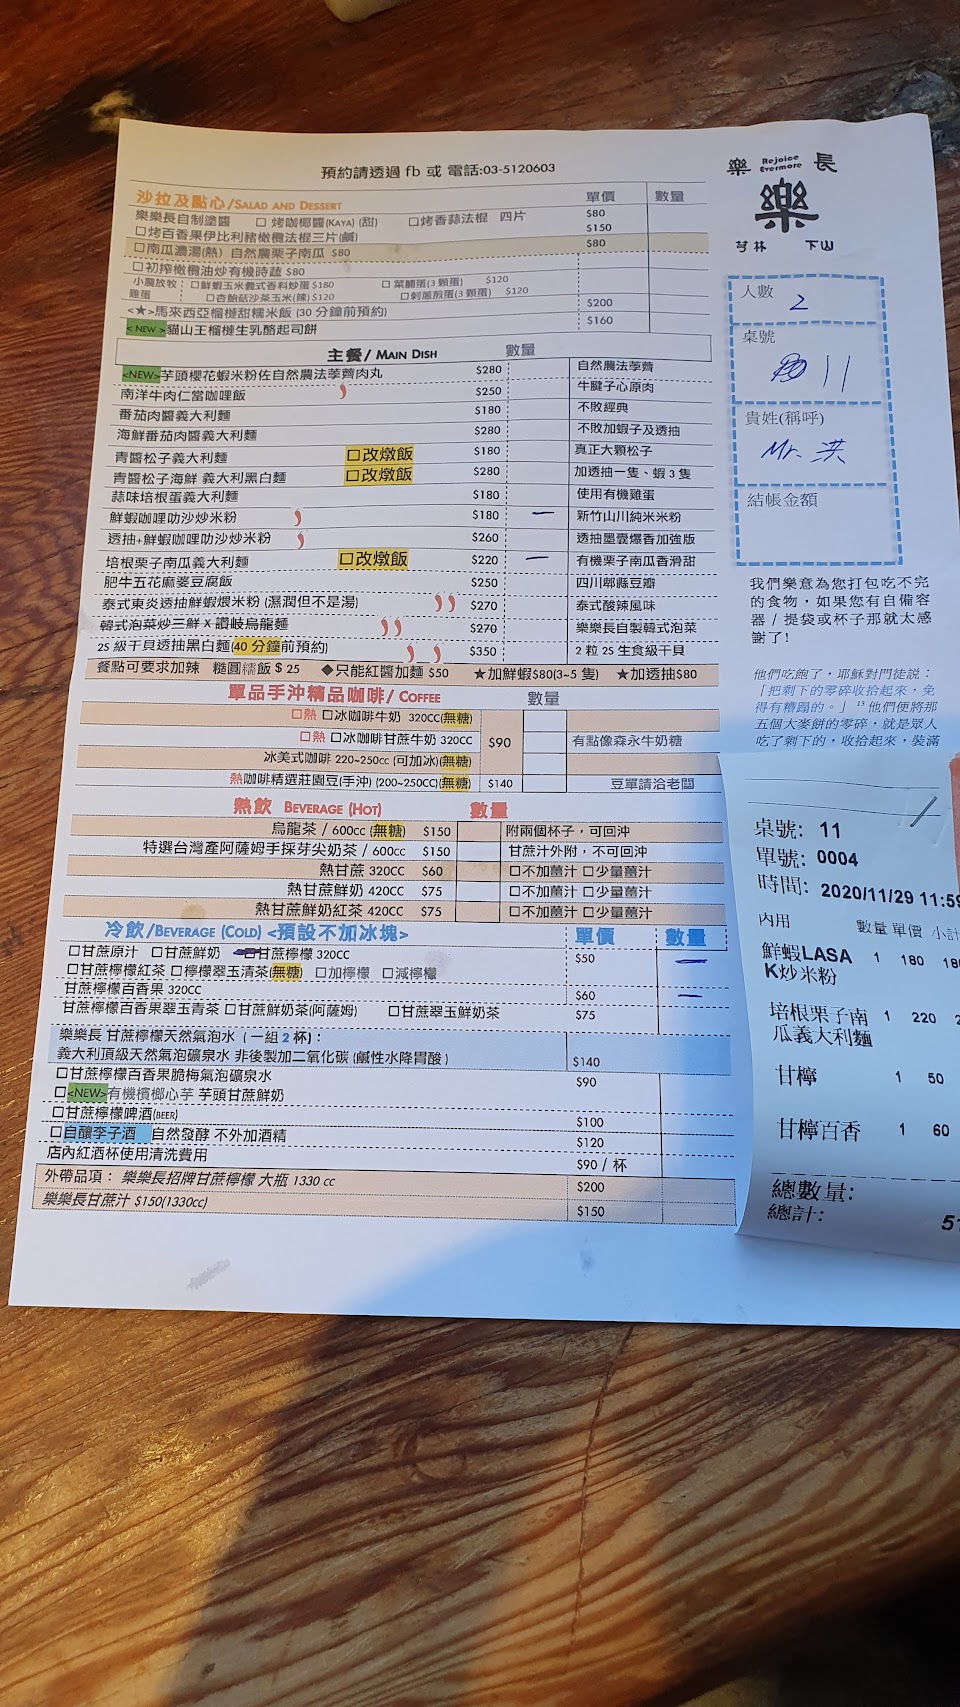 預約請透過 fb 或 電話:03-5120603
沙拉及點心/SALAD AND DESSERT 單價 數量
樂樂長自制塗醬 □ 烤咖椰醬(KAYA) (甜) □烤香蒜法棍 四片 $80
□烤百香果伊比利豬橄欖法棍三片(鹹) $150
□南瓜濃湯(熱) 自然農栗子南瓜 $80 $80
□初搾橄欖油炒有機時蔬 $80
小農放牧雞蛋 □鮮蝦玉米義式香料炒蛋 $180 □ 菜脯蛋(3顆蛋) $120
□杏鮑菇沙茶玉米(辣) $120 □刺蔥煎蛋(3 顆蛋) $120
<★>馬來西亞榴槤甜糯米飯 (30 分鐘前預約) $200
<NEW>貓山王榴槤生乳酪起司餅 $160
主餐/ MAIN DISH 數量
<NEW>芋頭櫻花蝦米粉佐自然農法荸薺肉丸 $280 自然農法荸薺
南洋牛肉仁當咖哩飯 $250 牛腱子心原肉
番茄肉醬義大利麵 $180 不敗經典
海鮮番茄肉醬義大利麵 $280 不敗加蝦子及透抽
青醬松子義大利麵 □改燉飯 $180 真正大顆松子
青醬松子海鮮 義大利黑白麵 □改燉飯 $280 加透抽一隻、蝦 3 隻
蒜味培根蛋義大利麵 $180 使用有機雞蛋
鮮蝦咖哩叻沙炒米粉 $180 一 新竹山川純米米粉
透抽+鮮蝦咖哩叻沙炒米粉 $260 透抽墨囊爆香加強版
培根栗子南瓜義大利麵 □改燉飯 $220 一 有機栗子南瓜香滑甜
肥牛五花麻婆豆腐飯 $250 四川郫縣豆瓣
泰式東炎透抽鮮蝦煨米粉 (濕潤但不是湯) $270 泰式酸辣風味
韓式泡菜炒三鮮 x 讚岐烏龍麵 $270 樂樂長自製韓式泡菜
2S 級干貝透抽黑白麵(40 分鐘前預約) $350 2 粒 2S 生食級干貝
餐點可要求加辣 糙圓糯飯 $ 25 ◆只能紅醬加麵 $50 ★加鮮蝦$80(3~5 隻) ★加透抽$80
單品手沖精品咖啡/ COFFEE 數量
□熱 □冰咖啡牛奶 320CC(無糖)
□熱 □冰咖啡甘蔗牛奶 320CC $90 有點像森永牛奶糖
冰美式咖啡 220~250cc (可加冰)(無糖)
熱咖啡精選莊園豆(手沖) (200~250CC)(無糖) $140 豆單請洽老闆
熱飲 BEVERAGE (HOT) 數量
烏龍茶 / 600cc (無糖) $150 附兩個杯子，可回沖
特選台灣產阿薩姆手採芽尖奶茶 / 600cc $150 甘蔗汁外附，不可回沖
熱甘蔗 320CC $60 □不加薑汁 □少量薑汁
熱甘蔗鮮奶 420CC $75 □不加薑汁 □少量薑汁
熱甘蔗鮮奶紅茶 420CC $75 □不加薑汁 □少量薑汁
冷飲/BEVERAGE (COLD) <預設不加冰塊> 單價 數量
□甘蔗原汁 □甘蔗鮮奶 □甘蔗檸檬 320CC $50 一
□甘蔗檸檬紅茶 □檸檬翠玉清茶(無糖) □加檸檬 □減檸檬
甘蔗檸檬百香果 320CC $60 一
甘蔗檸檬百香果翠玉青茶 □甘蔗鮮奶茶(阿薩姆) □甘蔗翠玉鮮奶茶 $75
樂樂長 甘蔗檸檬天然氣泡水 (一組 2 杯)：
義大利頂級天然氣泡礦泉水 非後製加二氧化碳 (鹼性水降胃酸) $140
□甘蔗檸檬百香果脆梅氣泡礦泉水 $90
□<NEW>有機檳榔心芋 芋頭甘蔗鮮奶
□甘蔗檸檬啤酒(BEER) $100
□自釀李子酒 自然發酵 不外加酒精 $120
店內紅酒杯使用清洗費用 $90 / 杯
外帶品項： 樂樂長招牌甘蔗檸檬 大瓶 1330 cc $200
樂樂長甘蔗汁 $150(1330cc) $150
樂 Rejoice Evermore 長
樂
芎林 下山
人數
2
桌號
11
貴姓(稱呼)
Mr. 洪
結帳金額
我們樂意為您打包吃不完
的食物，如果您有自備容
器 / 提袋或杯子那就太感
謝了!
他們吃飽了，耶穌對門徒説：
「把剩下的零碎收拾起來，免
得有糟蹋的。」 13 他們便將那
五個大麥餅的零碎，就是眾人
吃了剩下的，收拾起來，裝滿
桌號: 11
單號: 0004
時間: 2020/11/29 11:59
內用 數量 單價 小計
鮮蝦LASA 1 180
K炒米粉
培根栗子南 1 220
瓜義大利麵
甘檸 1 50
甘檸百香 1 60
總數量:
總計: